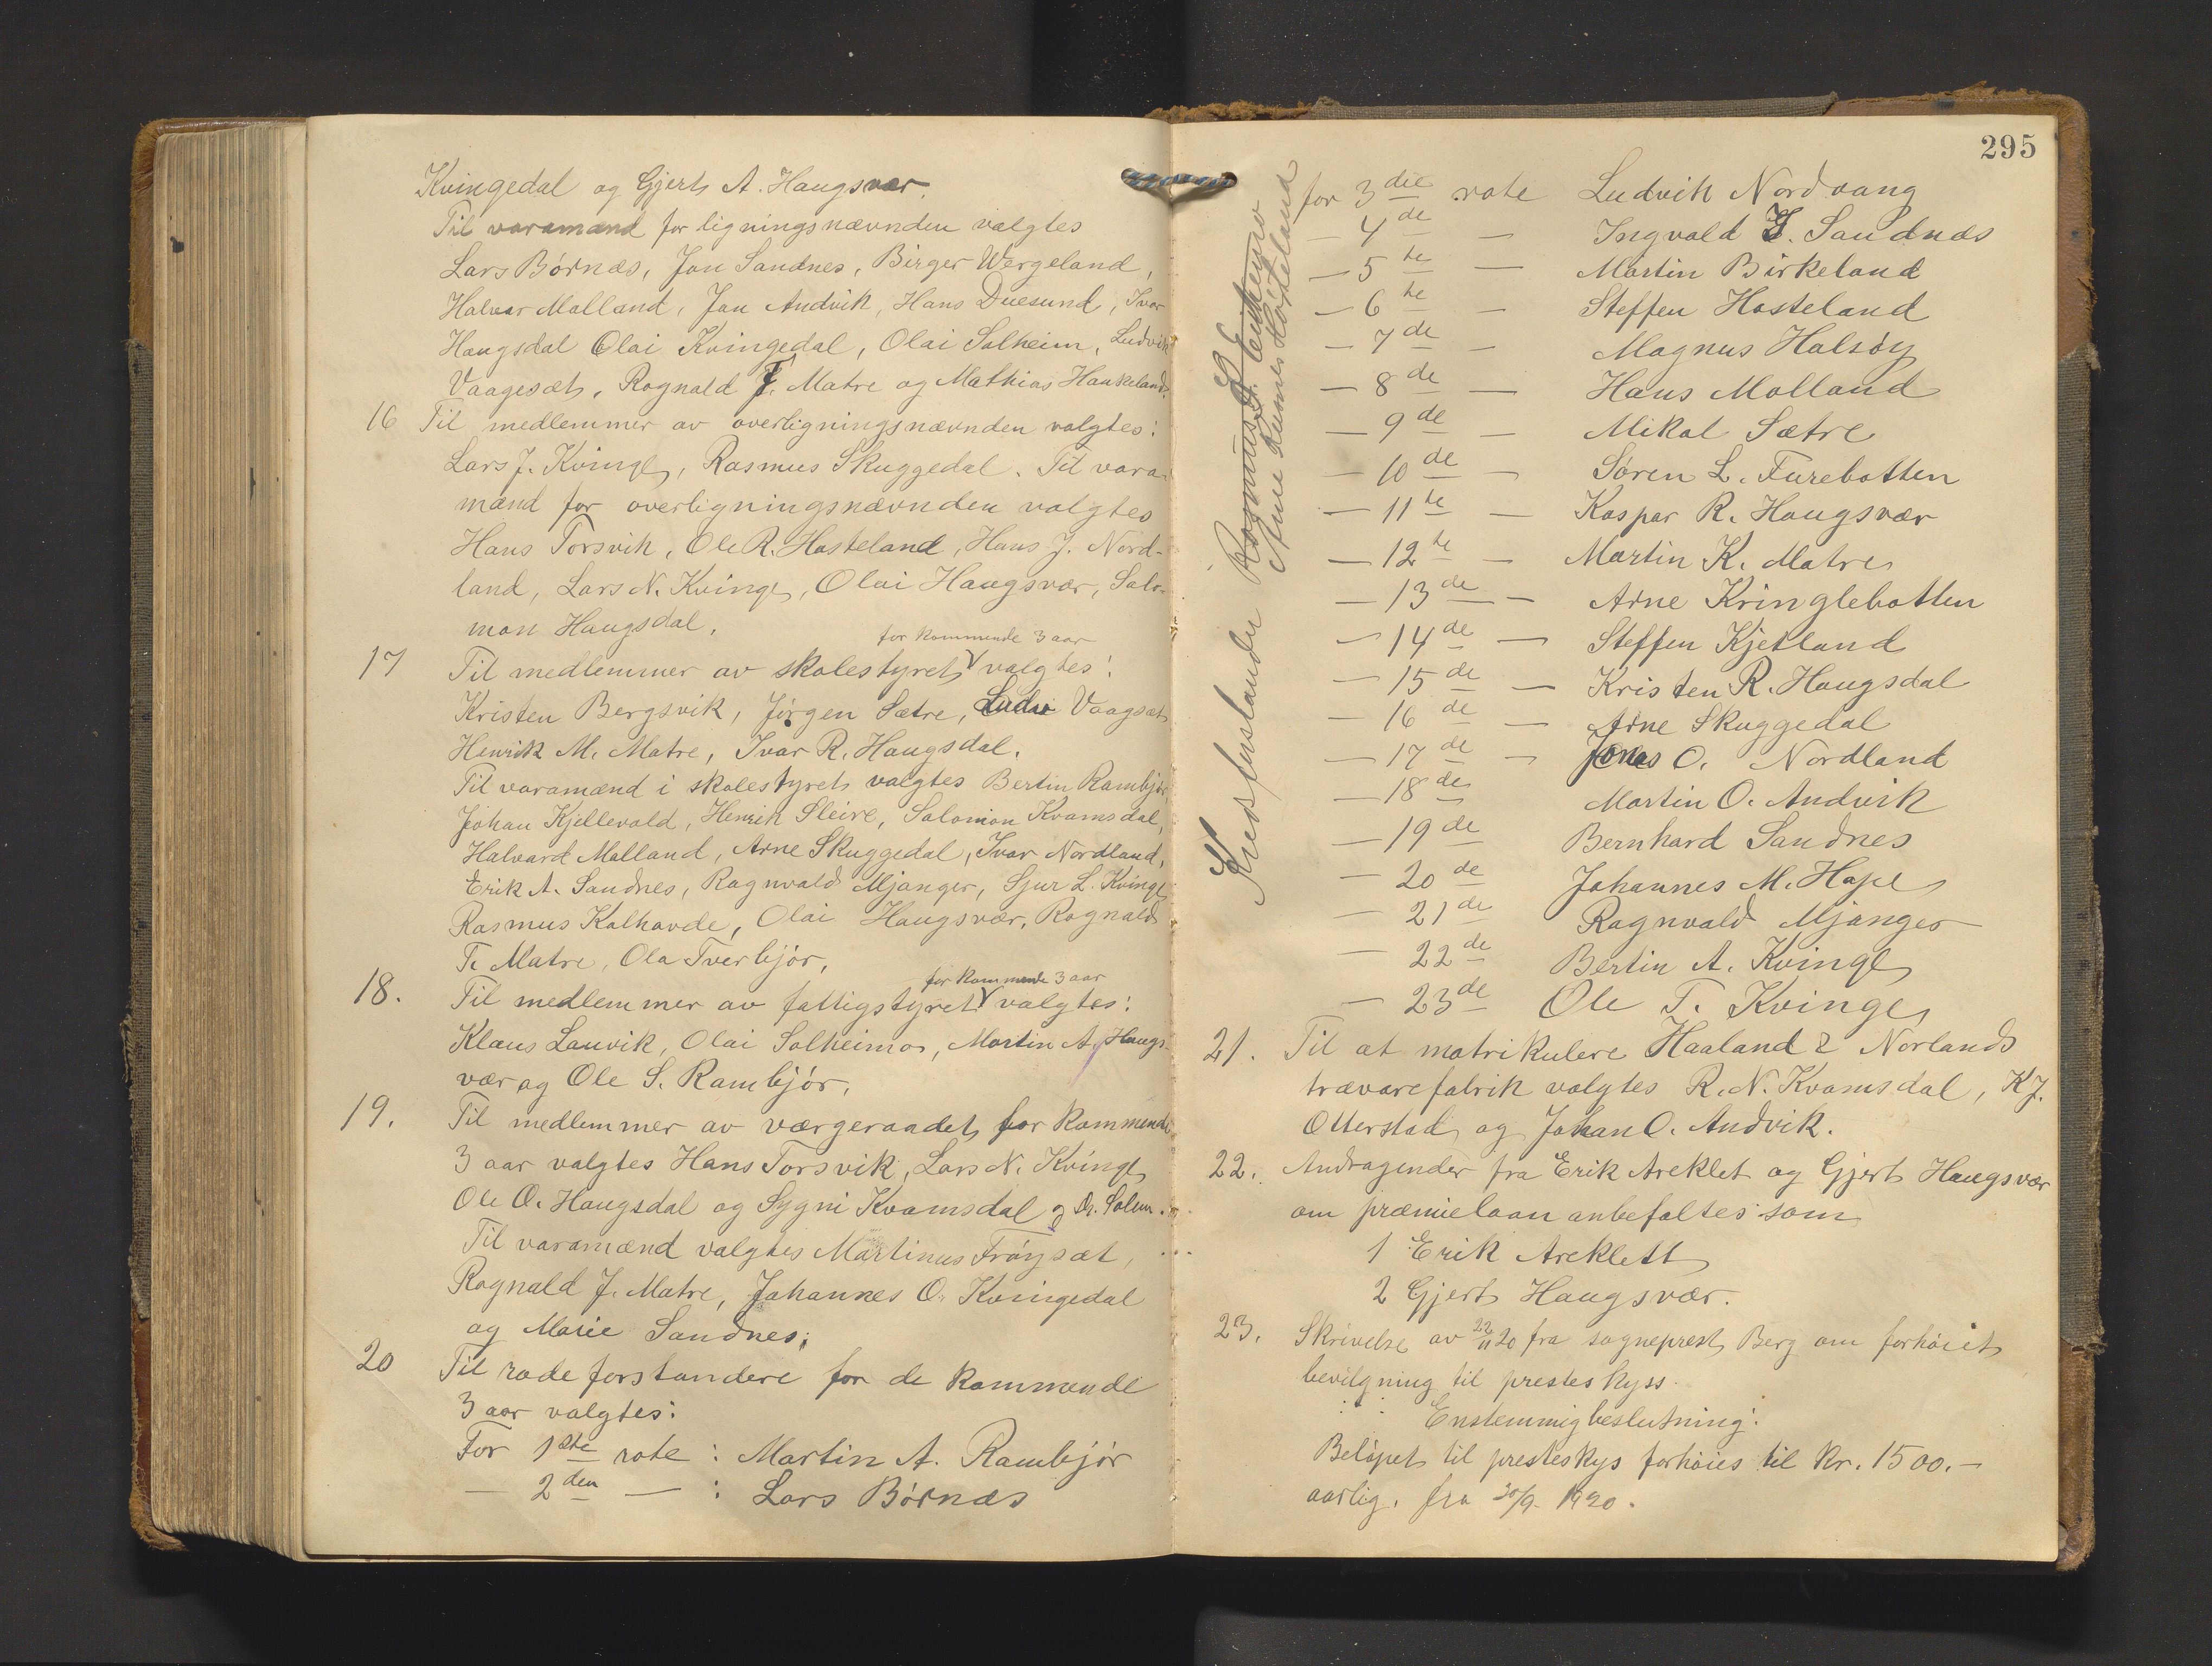 Kvingedal og Gjert A. Haugsvær.
Til varamænd for ligningsnævnden valgtes
Lars Børnæs, Jan Sandnes, Birger Wergeland,
Halvar Molland, Jan Andvik, Hans Duesund, Ivar
Haugsdal Olai Kvingedal, Olai Solheim, Ludvik
Vaagesæt, Ragnald T. Matre og Mathias Haukeland.
16 Til medlemmer av overligningsnævnden valgtes:
Lars J. Kvinge, Rasmus Skuggedal. Til vara-
mænd for overligningsnævnden valgtes
Hans Torsvik, Ole R. Hosteland, Hans J. Nord-
land, Lars N. Kvinge, Olai Haugsvær, Salo-
mon Haugsdal.
for kommende 3 aar
17 Til medlemmer av skolestyret valgtes:
Kristen Bergsvik, Jørgen Sætre, Ludv Vaagsæt
Henrik M. Matre, Ivar R. Haugsdal.
Til varamænd i skolestyret valgtes Bertin Rambjør,
Johan Kjellevold, Henrik Sleire, Salomon Kvamsdal,
Halvard Molland, Arne Skuggedal, Ivar Nordland,
Erik A. Sandnes, Ragnvald Mjanger, Sjur L. Kvinge
Rasmus Kalhovde, Olai Haugsvær, Ragnald
T. Matre, Ola Tverbjør,
for kommende 3 aar
18. Til medlemmer av fattigstyret valgtes:
Klaus Lauvik, Olai Solheim, Martin A. Haugs-
vær og Ole S. Rambjør.
19. Til medlemmer av værgeraadet for kommende
3 aar valgtes Hans Torsvik, Lars N. Kvinge
Ole O. Haugsdal og Sygni Kvamsdal og Dr. Solem.
Til varamænd valgtes Martinus Frøysæt,
Ragnald J. Matre, Johannes O. Kvingedal
og Marie Sandnes.
20 Til rodeforstandere for de kommende
3 aar valgtes:
For 1ste rode: Martin A. Rambjør
— 2den — : Lars Børnæs
295
for 3die rode Ludvik Nordvang
— 4de — Ingvald J. Sandnæs
— 5te — Martin Birkeland
— 6te — Steffen Hosteland
— 7de — Magnus Halsøy
— 8de — Hans Molland
— 9de — Mikal Sætre
— 10de — Søren L. Furebotten
— 11te — Kaspar R. Haugsvær
— 12te — Martin K. Matre
— 13de — Arne Kringlebotten
— 14de — Steffen Kjetland
— 15de — Kristen R. Haugsdal
— 16de — Arne Skuggedal
— 17de — Jonas O. Nordland
— 18de Martin O. Andvik
— 19de Bernhard Sandnes
— 20de Johannes M. Hope
— 21de Ragnvald Mjanger
— 22de Bertin A. Kvinge
— 23de Ole T. Kvinge
Kredsforstander Rasmus
Hosteland
21. Til at matrikulere Haaland & Norlands
trævarefabrik valgtes R. N. Kvamsdal, K J.
Otterstad og Johan O. Andvik.
22. Andragender fra Erik Areklet og Gjert Haugsvær
om præmielaan anbefaltes som
1 Erik Areklett
2 Gjert Haugsvær.
23. Skrivelse av 22/11 20 fra sogneprest Berg om forhøiet
bevilgning til presteskyss.
Enstemmig beslutning:
Beløpet til presteskys forhøies til kr. 1500.—
aarlig. fra 30/9- 1920.